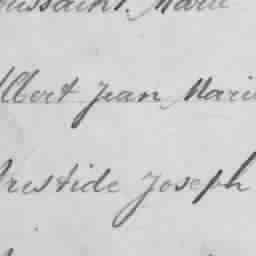 Toussaint. Marie
Albert Jean Marie
Aristide Joseph